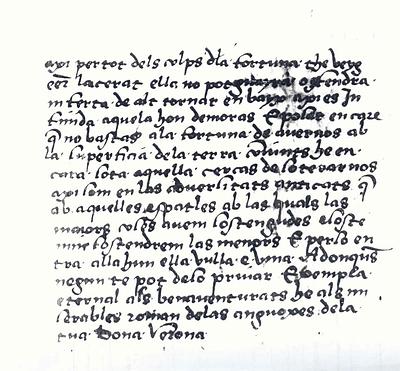 axi per tot dels colps dla fortuna che vege
esser lacerat ella no pot ostendra
in terra de alt tornar en baix axi es In
timida aquela hon demoras E potser encare
q̄ no bastas ala fortuna de auernos ab
la superficia dela terra conuints he en
cara sota aquella cercas de soterarnos
axi som en las aduersitats anticats q̄
ab aquelles espatles ab las quals las
maiors coses auem sostengudes e soste
sostendrem las menors E perso en
tra alla hun ella vulla e vina Adonques
negun te pot deso priuar Exempla
eternal als benauenturats he als mi
serables roman delas anguoxes dela
tua Dona Verona